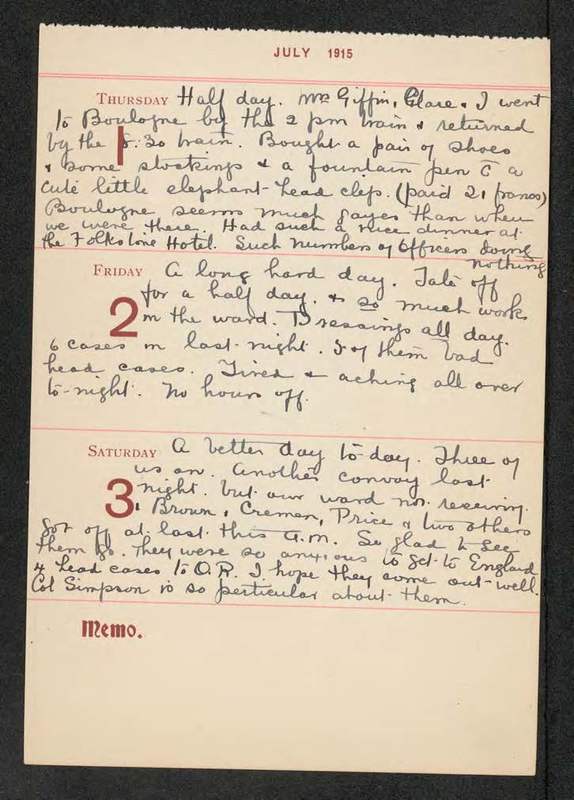 JULY 1915
THURSDAY Half day. Mrs Giffin, Clare & I went
to Boulogne by the 2 pm train & returned
by the 8.30 train. Bought a pair of shoes
1
& some stockings & a fountain pen c̄ a
cute little elephant head clip. (paid 21 francs)
Boulogne seems much gayer than when
we were there. Had such a nice dinner at
the Folkstone Hotel. Such numbers of Officers doing
nothing
FRIDAY A long hard day. Tate off
for a half day. & so much work
2
in the ward. Dressings all day.
6 cases in last night. 5 of them bad
head cases. Tired & aching all over
to-night. No hours off.
SATURDAY A better day to-day. Three of
us on. Another convoy last
3
night. but our ward not receiving.
Brown, Cremen, Price & two others
got off at last this a.m. So glad to see
them go. They were so anxious to get to England
4 head cases to O.R. I hope they come out well.
Col Simpson is so particular about them.
Memo.